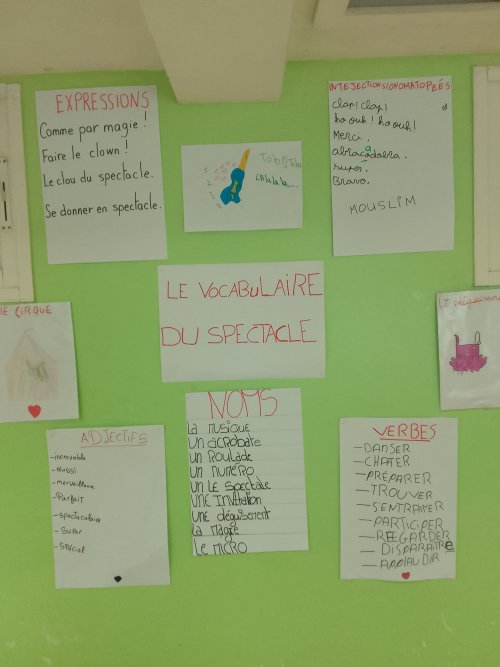 EXPRESSIONS
Comme par magie !
Faire le clown !
Le clou du spectacle.
Se donner en spectacle.
INTEJECTIONS/ONOMATOPEÉS
clap! clap!
ha ouh! ha ouh!
Merci.
abracadabra.
super.
Bravo.
MOUSLIM
LALALALA...
LE VOCABULAIRE
DU SPECTACLE
LE CIRQUE
LE déguisement
ADJECTIFS
-incroyable
-réussi
-merveilleux
-Parfait
-spectaculaire
-Super
-SPécial
NOMS
La musique
un acrobate
un roulade
un numéro
un LE spectacle
UNE Invitation
UNE déguisement
La magie
Le micro
VERBES
—DANSER
—CHATER
—PRÉPARER
—TROUVER
—S'ENTRAINER
—PARTICIPER
—REGARDER
—DISPARAITRE
—APPLAUDIR